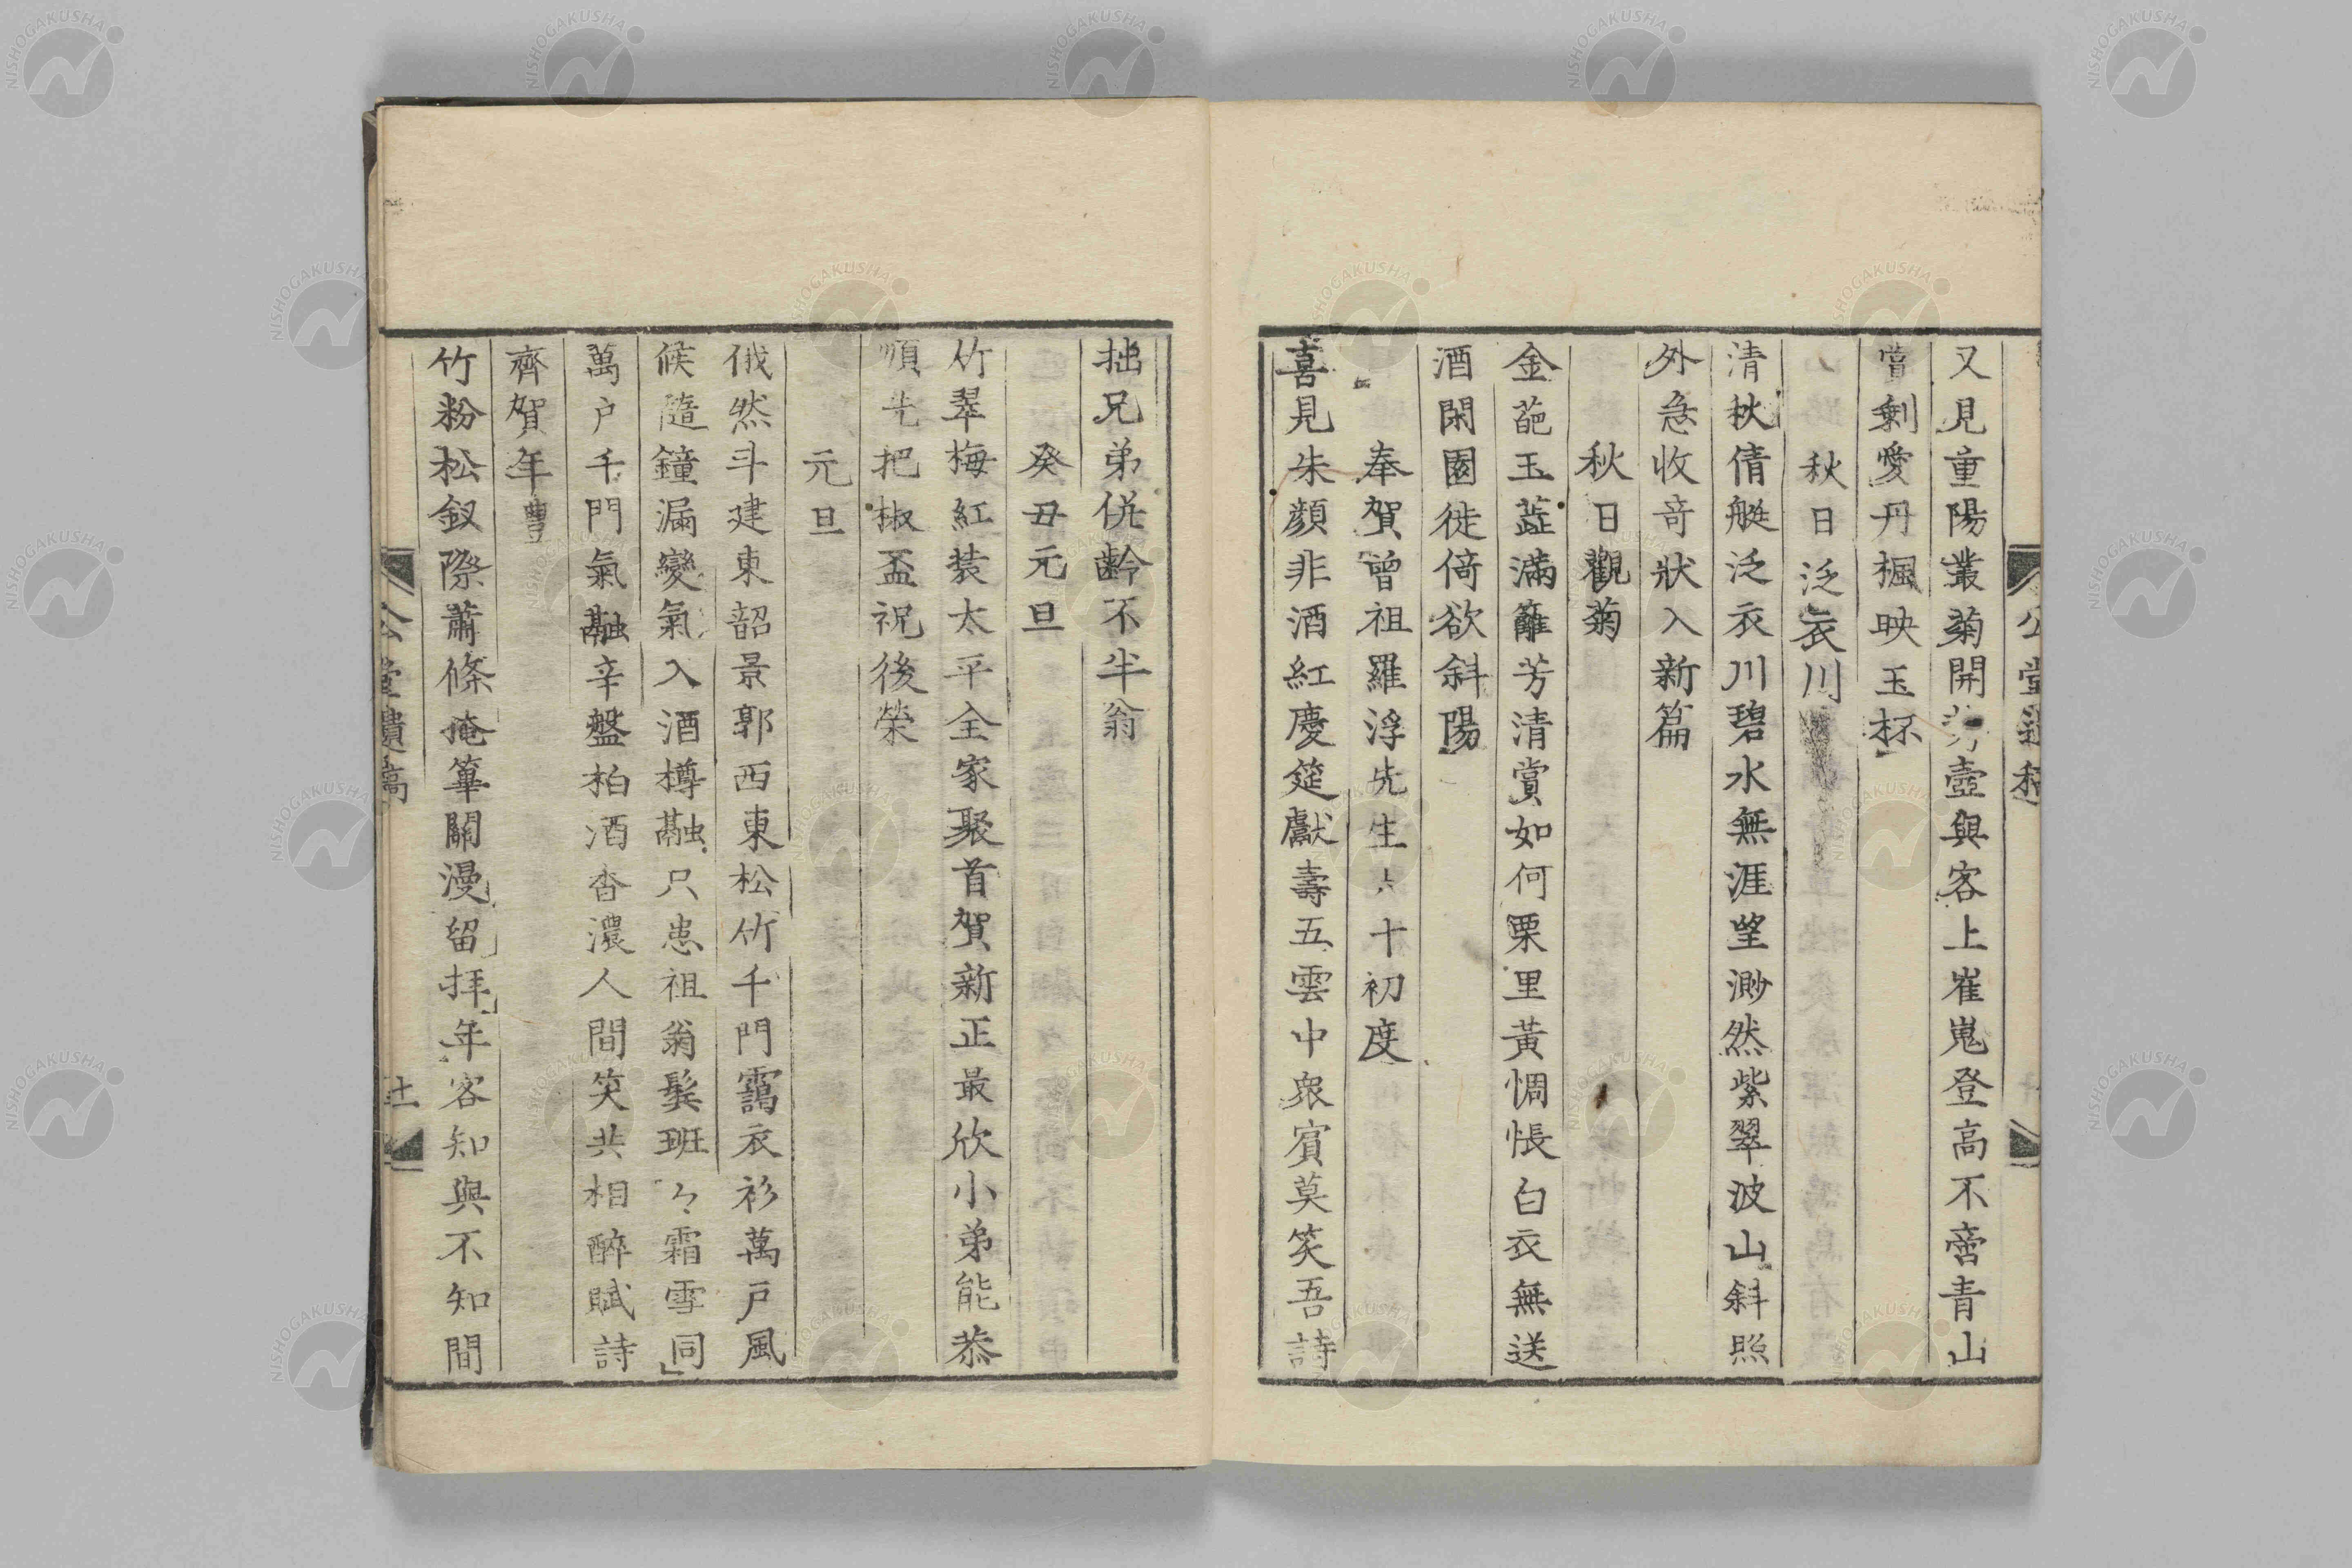 又見重陽叢菊開芳壺與客上崔嵬登高不啻青山
嘗剩愛丹楓映玉杯
秋日泛衣川
清秋倩艇泛衣川碧水無涯望渺然紫翠波山斜照
外急收奇狀入新篇
秋日觀菊
金葩玉蕋滿籬芳清賞如何栗里黃惆悵白衣無送
酒閑園徙倚欲斜陽
奉賀曾祖羅浮先生六十初度
喜見朱顏非酒紅慶筵獻壽五雲中衆賓莫笑吾詩
拙兄弟併齡不半翁
癸丑元旦
竹翠梅紅裝太平全家聚首賀新正最欣小弟能恭
順先把椒盃祝後榮
元旦
俄然斗建東韶景郭西東松竹千門靄衣衫萬戶風
候隨鐘漏變氣入酒樽融只患祖翁鬂班々霜雪同
萬戶千門氣融辛盤柏酒香濃人間笑共相醉賦詩
齊賀年豐
竹粉松釵際蕭條掩篳關漫留拜年客知與不知間
公堂遺稿
十一
NISHOGAKUSHA